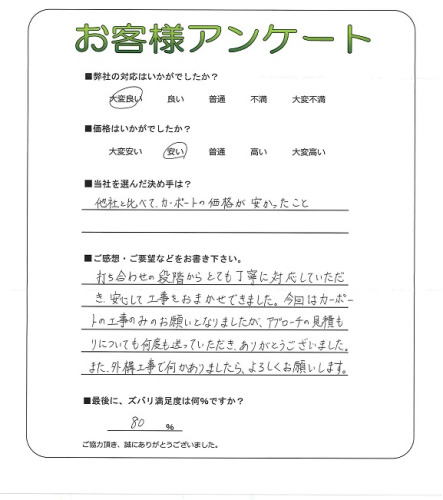 お客様アンケート
■弊社の対応はいかがでしたか？
大変良い 良い 普通 不満 大変不満
■価格はいかがでしたか？
大変安い 安い 普通 高い 大変高い
■当社を選んだ決め手は？
他社と比べて、カーポートの価格が安かったこと
■ご感想・ご要望などをお書き下さい。
打ち合わせの段階からとても丁寧に対応していただ
き、安心して工事をおまかせできました。今回はカーポー
トの工事のみのお願いとなりましたが、アプローチの見積も
りについても何度も送っていただき、ありがとうございました。
また、外構工事で何かありましたら、よろしくお願いします。
■最後に、ズバリ満足度は何%ですか？
80 %
ご協力頂き、誠にありがとうございました。